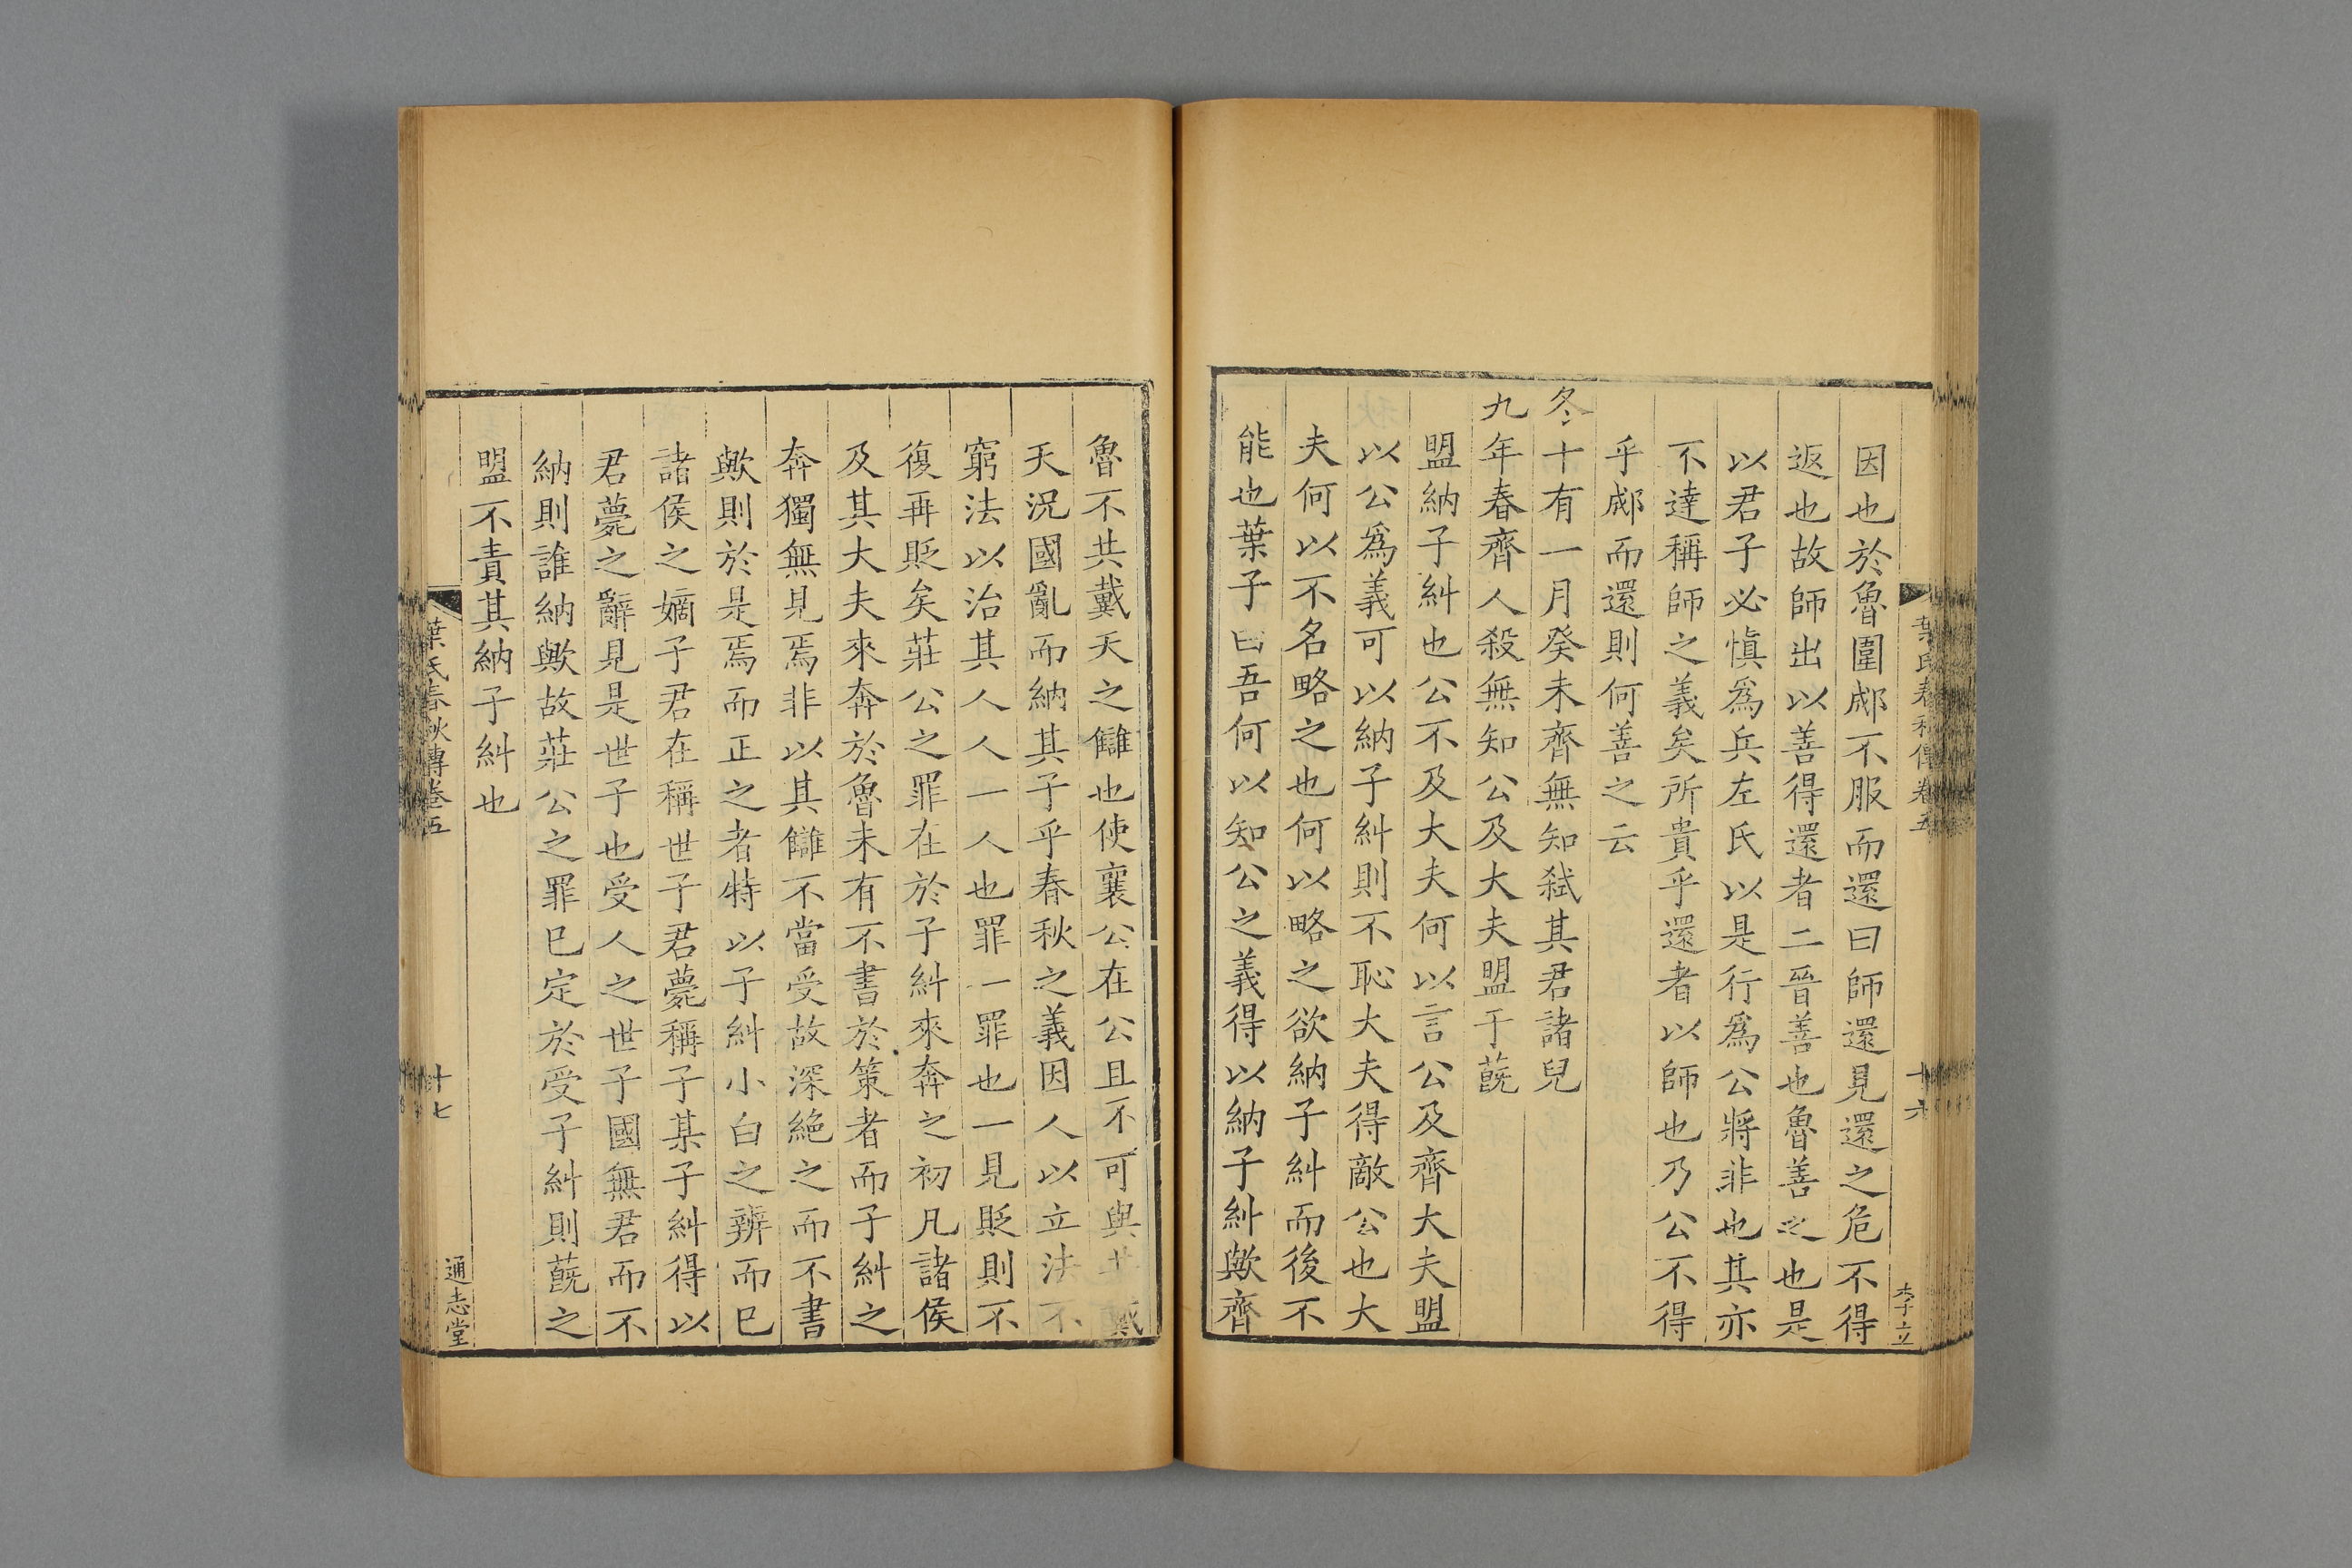 因也於魯圍郕不服而還曰師還見還之危不得
返也故師出以善得還者二晉善也魯善之也是
以君子必慎爲兵左氏以是行爲公將非也其亦
不達稱師之義矣所貴乎還者以師也乃公不得
乎郕而還則何善之云
冬十有一月癸未齊無知弑其君諸兒
九年春齊人殺無知公及大夫盟于蔇
盟納子糾也公不及大夫何以言公及齊大夫盟
以公爲義可以納子糾則不恥大夫得敵公也大
夫何以不名略之也何以略之欲納子糾而後不
能也葉子曰吾何以知公之義得以納子糾歟齊
葉氏春秋傳卷五
十六
魯不共戴天之讎也使襄公在公且不可與共戴
天況國亂而納其子乎春秋之義因人以立法不
窮法以治其人人一人也罪一罪也一見貶則不
復再貶矣莊公之罪在於子糾來奔之初凡諸侯
及其大夫來奔於魯未有不書於策者而子糾之
奔獨無見焉非以其讎不當受故深絕之而不書
歟則於是焉而正之者特以子糾小白之辨而已
諸侯之嫡子君在稱世子君薨稱子某子糾得以
君薨之辭見是世子也受人之世子國無君而不
納則誰納歟故莊公之罪已定於受子糾則蔇之
盟不責其納子糾也
葉氏春秋傳卷五
十七
通志堂